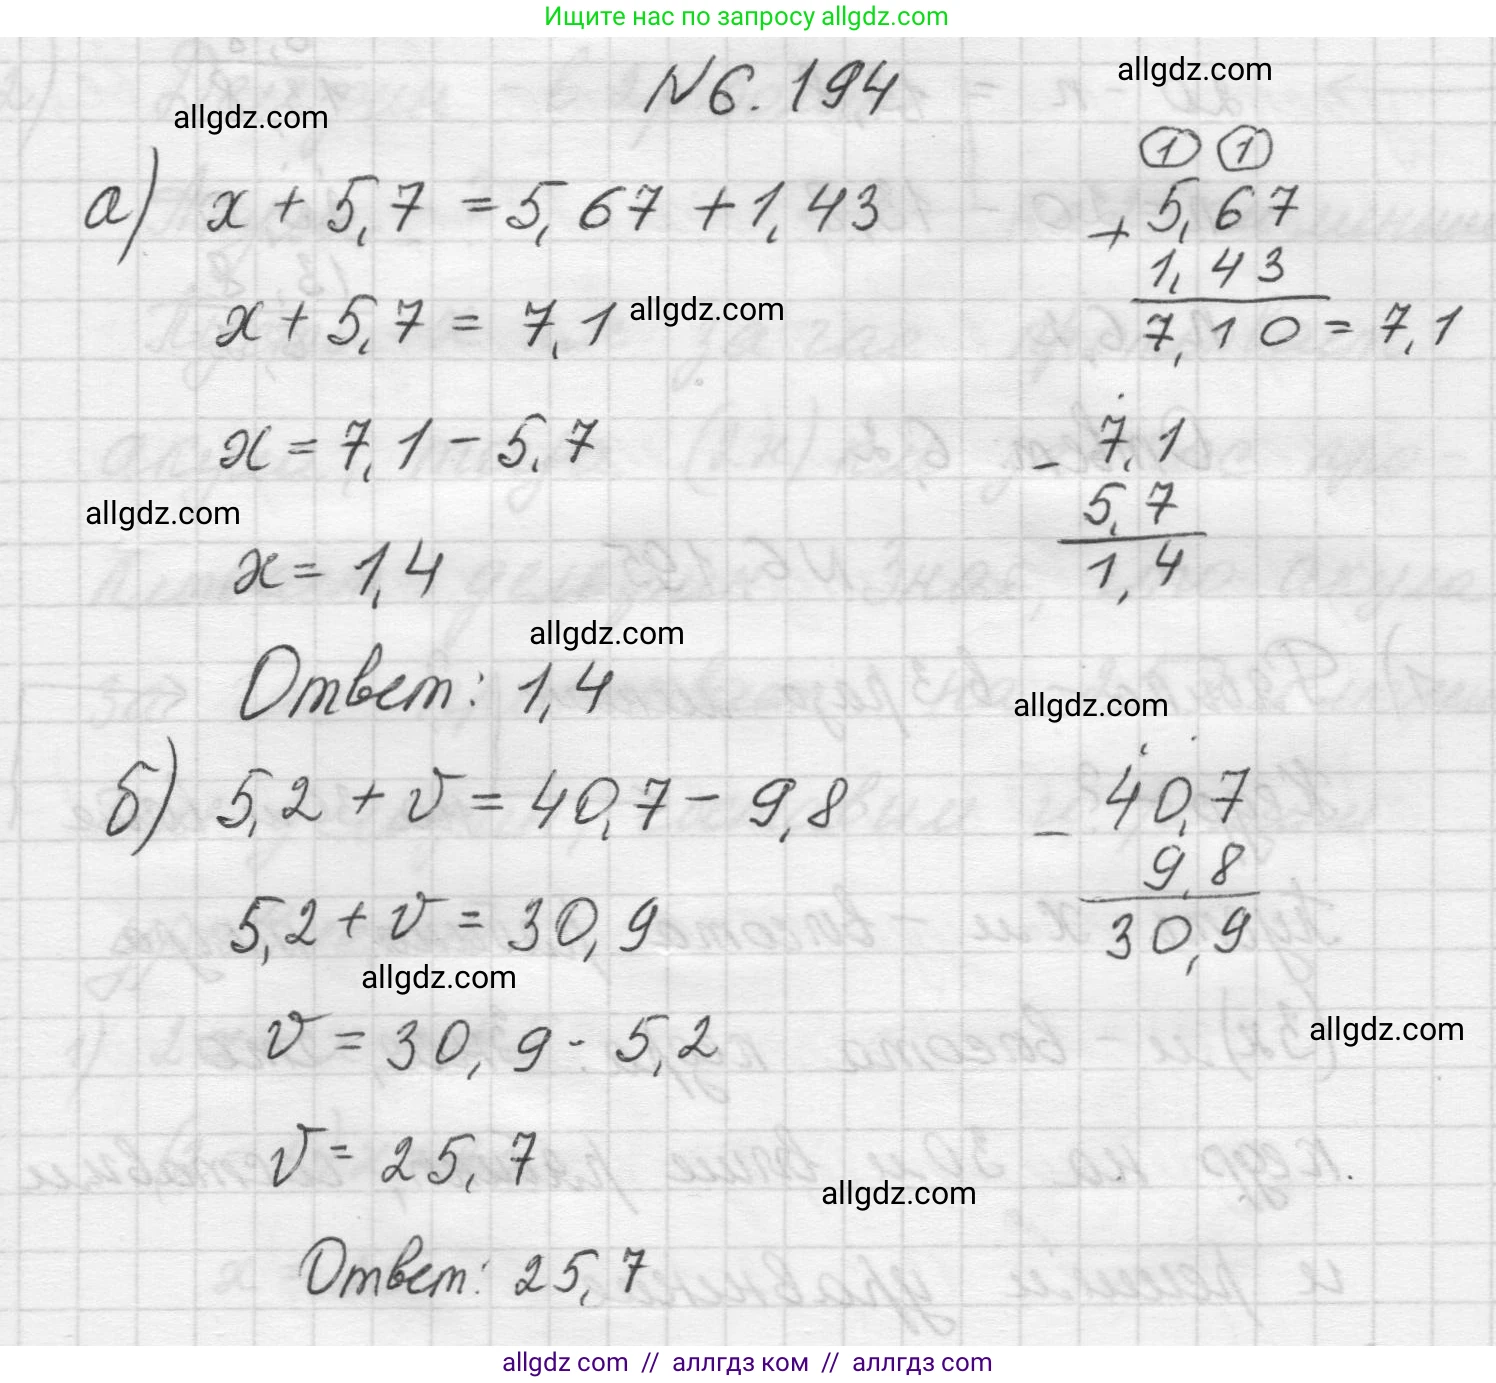 Ищите нас по запросу allgdz.com
№6.194
allgdz.com
allgdz.com
а) x + 5,7 = 5,67 + 1,43
1 1
+ 5,67
1,43
7,10 = 7,1
x + 5,7 = 7,1
allgdz.com
x = 7,1 - 5,7
- 7,1
5,7
1,4
allgdz.com
x = 1,4
allgdz.com
Ответ: 1,4
allgdz.com
б) 5,2 + v = 40,7 - 9,8
- 40,7
9,8
30,9
5,2 + v = 30,9
allgdz.com
v = 30,9 - 5,2
allgdz.com
v = 25,7
allgdz.com
Ответ: 25,7
allgdz com // аллгдз ком // аллгдз com